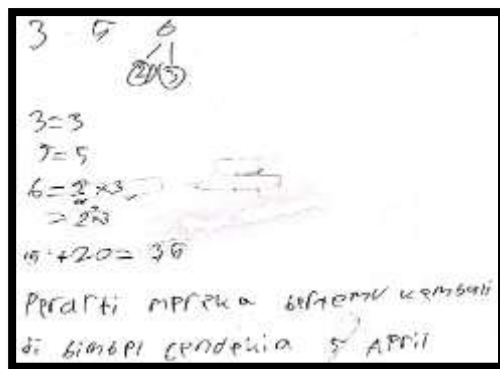 3 5 6
2 3
3=3
5=5
6=2×3
=2×3
15+20=35
Perarti mereka bertemu kembali
di bimbel cendekia 5 April